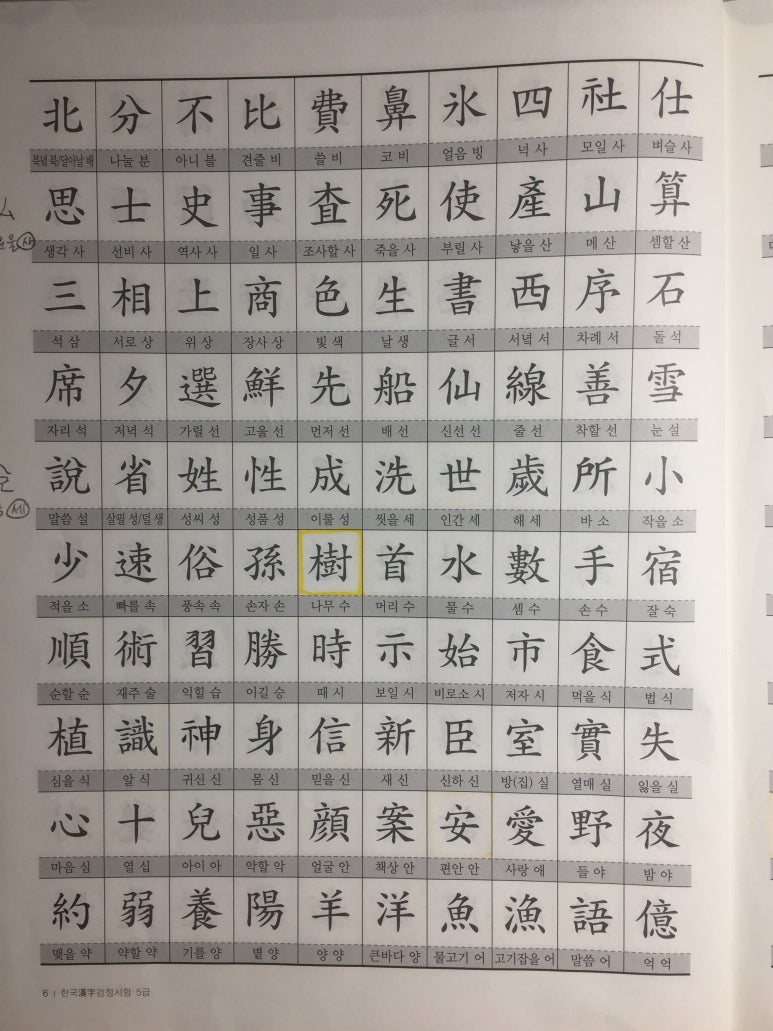 北 分 不 比 費 鼻 氷 四 社 仕
북녘 북/달아날 배 나눌 분 아니 불 견줄 비 쓸 비 코 비 얼음 빙 넉 사 모일 사 벼슬 사
思 士 史 事 査 死 使 產 山 算
생각 사 선비 사 역사 사 일 사 조사할 사 죽을 사 부릴 사 낳을 산 메 산 셈할 산
三 相 上 商 色 生 書 西 序 石
석 삼 서로 상 위 상 장사 상 빛 색 날 생 글 서 서녘 서 차례 서 돌 석
席 夕 選 鮮 先 船 仙 線 善 雪
자리 석 저녁 석 가릴 선 고울 선 먼저 선 배 선 신선 선 줄 선 착할 선 눈 설
說 省 姓 性 成 洗 世 歲 所 小
말씀 설 살필 성/덜 생 성씨 성 성품 성 이룰 성 씻을 세 인간 세 해 세 바 소 작을 소
少 速 俗 孫 樹 首 水 數 手 宿
적을 소 빠를 속 풍속 속 손자 손 나무 수 머리 수 물 수 셈 수 손 수 잘 숙
順 術 習 勝 時 示 始 市 食 式
순할 순 재주 술 익힐 습 이길 승 때 시 보일 시 비로소 시 저자 시 먹을 식 법 식
植 識 神 身 信 新 臣 室 實 失
심을 식 알 식 귀신 신 몸 신 믿을 신 새 신 신하 신 방(집) 실 열매 실 잃을 실
心 十 兒 惡 顔 案 安 愛 野 夜
마음 심 열 십 아이 아 악할 악 얼굴 안 책상 안 편안 안 사랑 애 들 야 밤 야
約 弱 養 陽 羊 洋 魚 漁 語 億
맺을 약 약할 약 기를 양 볕 양 양 양 큰바다 양 물고기 어 고기잡을 어 말씀 어 억 억
6 | 한국漢字검정시험 5급